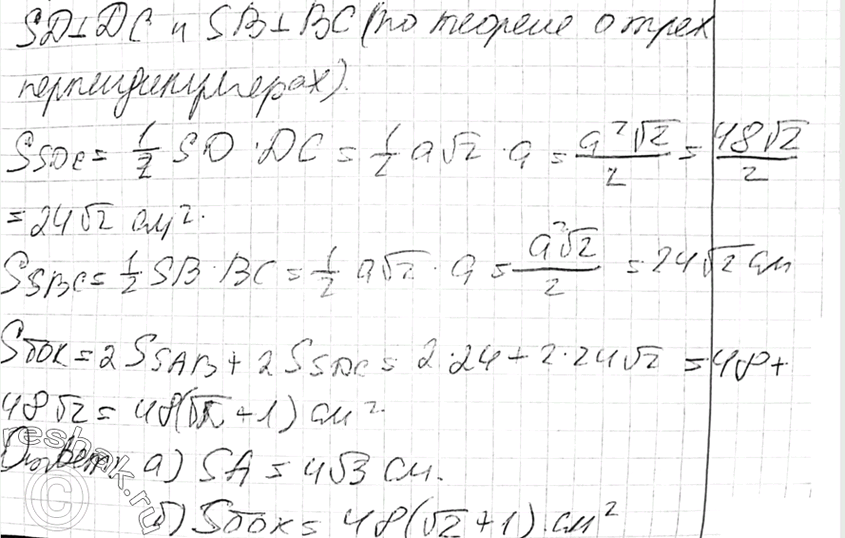 SD⊥DC и SB⊥BC (по теореме о трех
перпендикулярах).
S_SDC = 1/2 SD · DC = 1/2 a√2 · a = a²√2/2 = 48√2/2
= 24√2 см².
S_SBC = 1/2 SB · BC = 1/2 a√2 · a = a²√2/2 = 24√2 см
Sбок = 2S_SAB + 2S_SDC = 2·24 + 2·24√2 = 48 +
48√2 = 48(√2 + 1) см²
Ответ: а) SA = 4√3 см.
б) Sбок = 48(√2 + 1) см²
reshak.ru